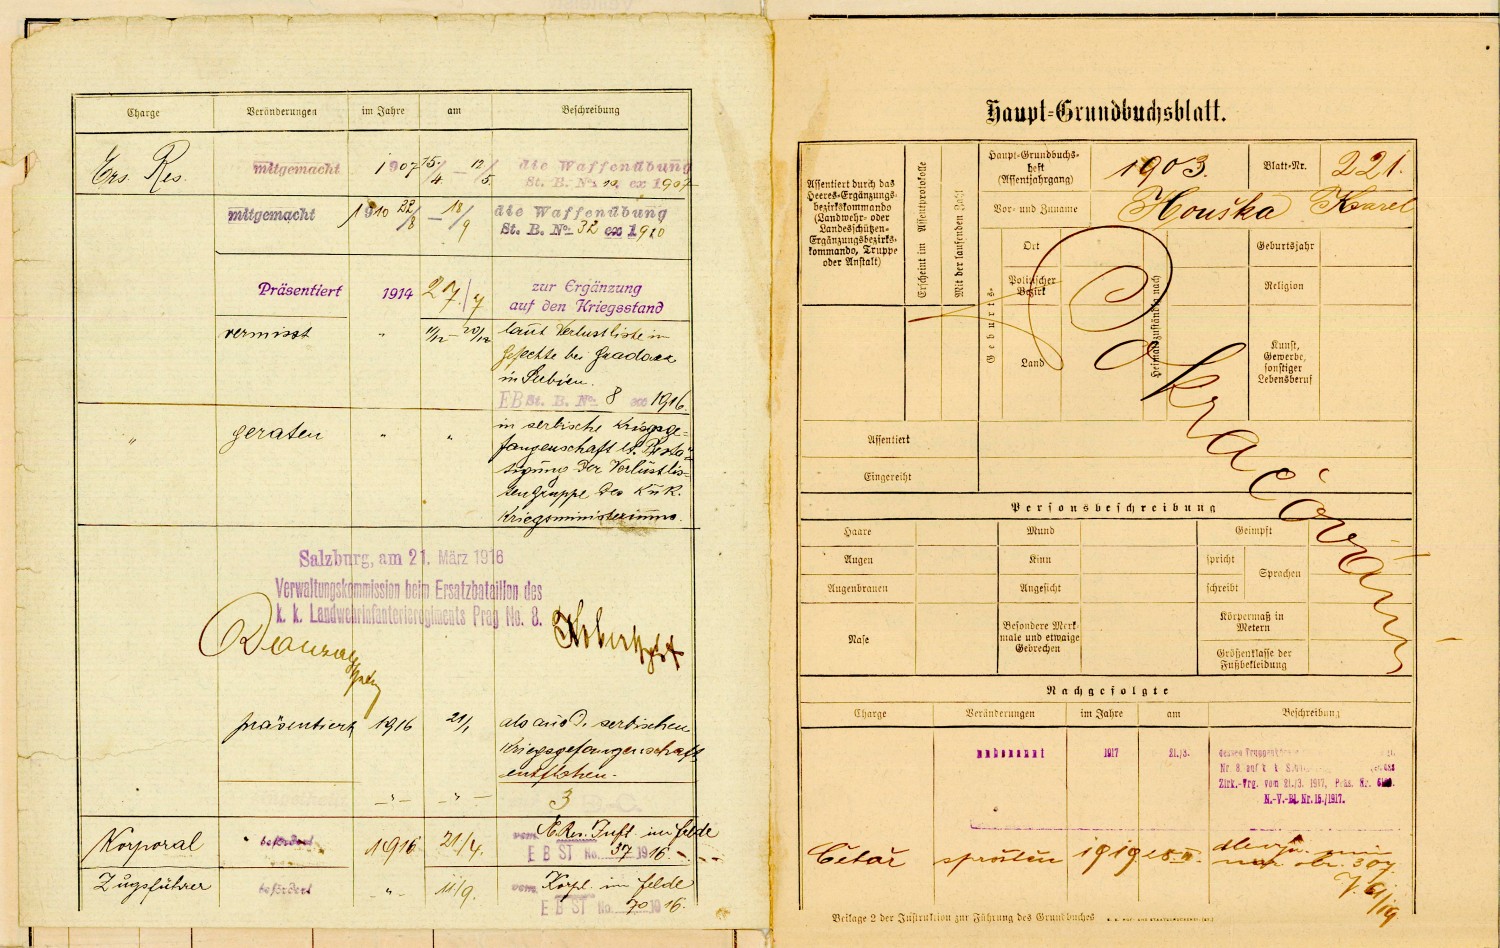 Charge Veränderungen im Jahre am Beschreibung
Ers. Res. mitgemacht 1907 15/4 – 12/5 die Waffenübung
St. B. No. 10 ex 1907
mitgemacht 1910 22/8 – 18/9 die Waffenübung
St. B. No. 32 ex 1910
Präsentiert 1914 27/7 zur Ergänzung
auf den Kriegsstand
vermisst " 11/12 – 20/12 laut Verlustliste im
Gefechte bei
in Serbien.
EB St. B. No. 8 ex 1916.
" geraten " " in serbische Kriegsge-
fangenschaft lt. Bestä-
tigung der Verlustlis-
tengruppe des K u K.
Kriegsministeriums.
Salzburg, am 21. März 1916
Verwaltungskommission beim Ersatzbataillon des
k. k. Landwehrinfanterieregiments Prag No. 8.
präsentiert 1916 21/1 als aus d. serbischen
Kriegsgefangenschaft
entflohen.
-"- -"- 3
Korporal " befördert 1916 21/4. vom E.Res. Inft. im Felde
E B ST No. 37 1916.
Zugsführer befördert -"- 11/9. vom Korpl. im Felde
E B ST No. 70 1916.
Haupt-Grundbuchsblatt.
Assentiert durch das
Heeres-Ergänzungs-
bezirkskommando
(Landwehr- oder
Landesschützen-
Ergänzungsbezirks-
kommando, Truppe
oder Anstalt)
Erscheint im Assentprotokolle
Mit der laufenden Zahl
Haupt-Grundbuchs-
heft
(Assentjahrgang)
1903. Blatt-Nr. 221.
Vor- und Zuname Houška Karel
Geburts-
Ort
Politischer
Bezirk
Land
Heimatszuständig nach
Geburtsjahr
Religion
Kunst,
Gewerbe,
sonstiger
Lebensberuf
Pokračování
Assentiert
Eingereiht
Personsbeschreibung
Haare Mund Geimpft
Augen Kinn spricht Sprachen
Augenbrauen Angesicht schreibt
Nase
Besondere Merk-
male und etwaige
Gebrechen
Körpermaß in
Metern
Größenklasse der
Fußbekleidung
Nachgefolgte
Charge Veränderungen im Jahre am Beschreibung
umbenannt 1917 21./3.
Nr. 8 auf k. k.
Zirk.-Vrg. vom 21./3. 1917, Präs. Nr.
N.-V.-Bl. Nr. 15./1917.
Četař 1919
307
Beilage 2 der Instruktion zur Führung des Grundbuches